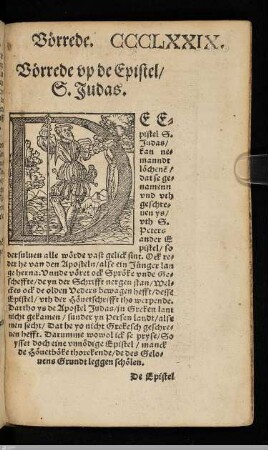 Vörrede. CCCCLXXIX.
Vörrede vp de Epistel/
S. Judas.
DE E-
pistel S.
Judas/
kan ne-
manndt
löchenē/
dat se ge-
namenn
vnd vth
geschre-
uen ys/
vth S.
Peters
ander E
pistel/ so
dersuluen alle wörde vast gelick sint. Ock re-
det he van den Aposteln/ alse ein Jünger lan
ge herna. Vnnde vöret ock Spröke vnde Ge-
scheffte/ de yn der Schrifft nergen stan/ Wel-
ckes ock de olden Veders bewagen hefft/ desse
Epistel/ vth der Höuetschrifft tho werpende.
Dartho ys de Apostel Judas/ in Greken lant
nicht gekamen/ sunder yn Persen landt/ alse
men secht/ Dat he yo nicht Grekesch geschre-
uen hefft. Darumme wowol ick se pryse/ So
ysset doch eine vnnödige Epistel/ manck
de Höuetböke thorekende/ de des Gelo-
uens Grundt leggen schölen.
De Epistel